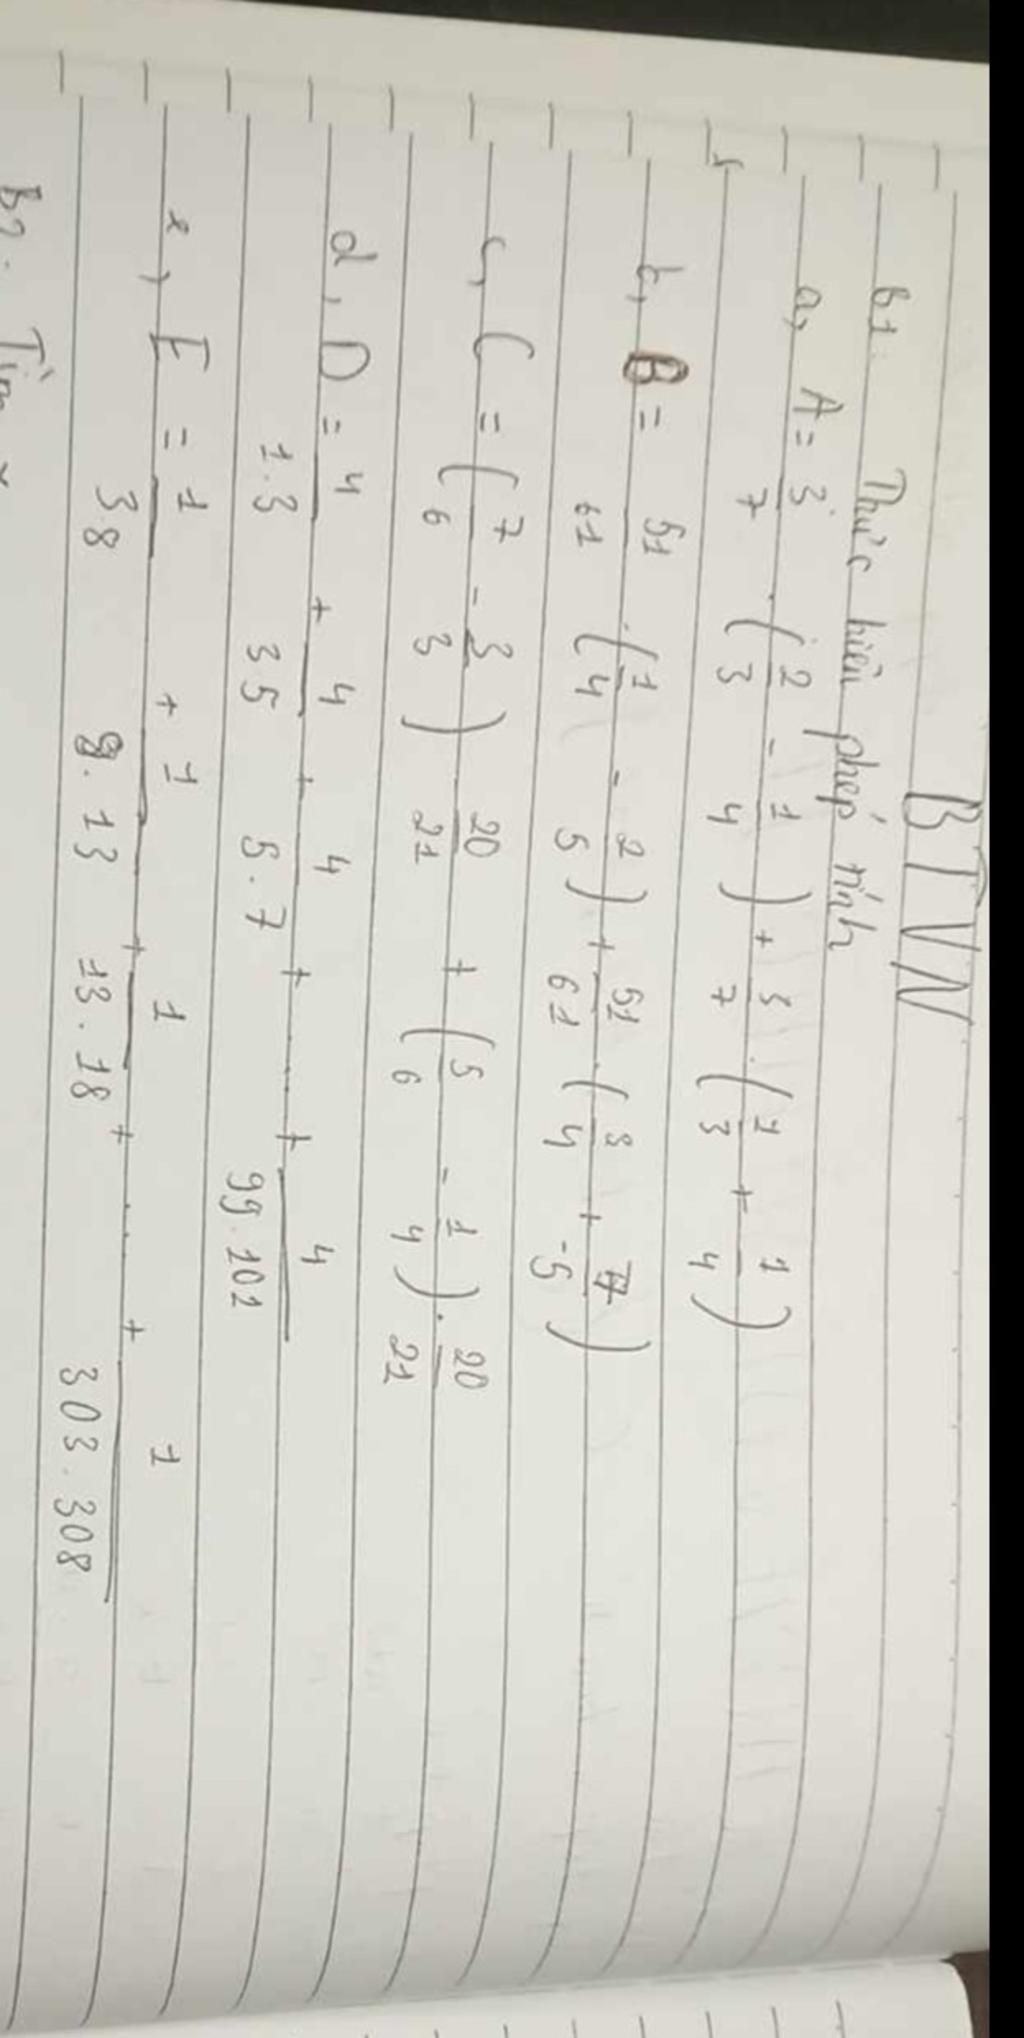 BTVN
B1: Thức hiện phép tính
a, A = 3/7 . (2/3 - 1/4) + 3/7 . (1/3 + 1/4)
b, B = 51/61 . (1/4 - 2/5) + 51/61 . (3/4 + 7/-5)
c, C = (7/6 - 3/3) 20/21 + (5/6 - 1/4) . 20/21
d, D = 4/1.3 + 4/3 5 + 4/5.7 + .... + 4/99.101
e, E = 1/3.8 + 1/8.13 + 1/13.18 + .... + 1/303.308
B2. Tìm x